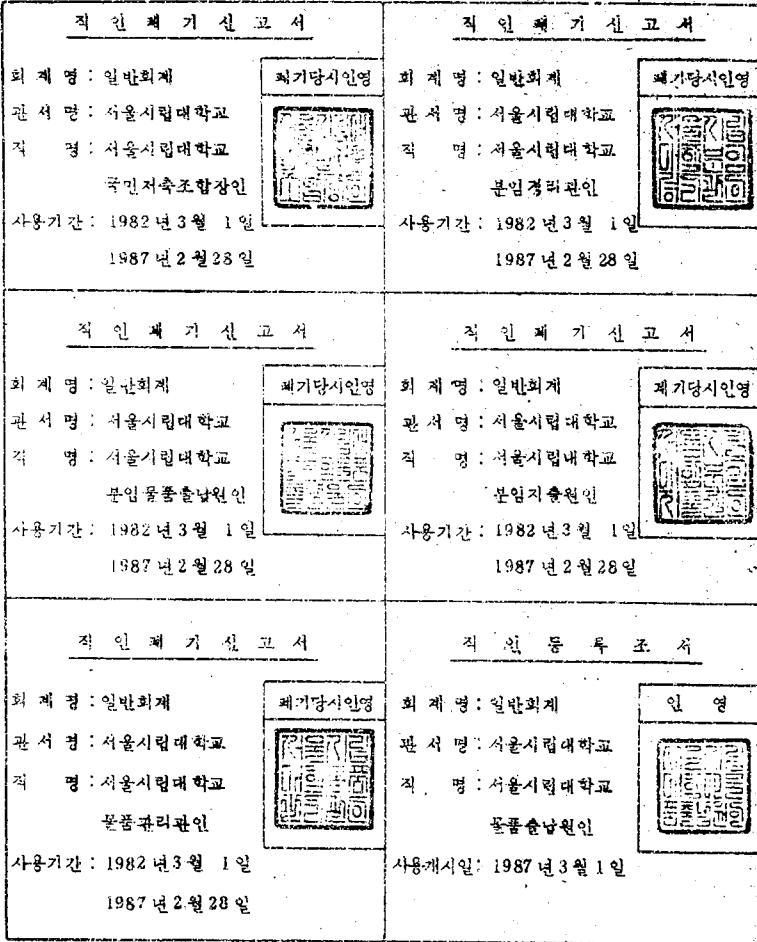 직인폐기신고서
회계명 : 일반회계
폐기당시인영
관서명 : 서울시립대학교
직 명 : 서울시립대학교
국민저축조합장인
사용기간 : 1982년 3월 1일
1987년 2월 28일
직인폐기신고서
회계명 : 일반회계
폐기당시인영
관서명 : 서울시립대학교
직 명 : 서울시립대학교
분임경리관인
사용기간 : 1982년 3월 1일
1987년 2월 28일
직인폐기신고서
회계명 : 일반회계
폐기당시인영
관서명 : 서울시립대학교
직 명 : 서울시립대학교
분임물품출납원인
사용기간 : 1982년 3월 1일
1987년 2월 28일
직인폐기신고서
회계명 : 일반회계
폐기당시인영
관서명 : 서울시립대학교
직 명 : 서울시립대학교
분임지출원인
사용기간 : 1982년 3월 1일
1987년 2월 28일
직인폐기신고서
회계명 : 일반회계
폐기당시인영
관서명 : 서울시립대학교
직 명 : 서울시립대학교
물품관리관인
사용기간 : 1982년 3월 1일
1987년 2월 28일
직인등록조서
회계명 : 일반회계
인 영
관서명 : 서울시립대학교
직 명 : 서울시립대학교
물품출납원인
사용개시일 : 1987년 3월 1일